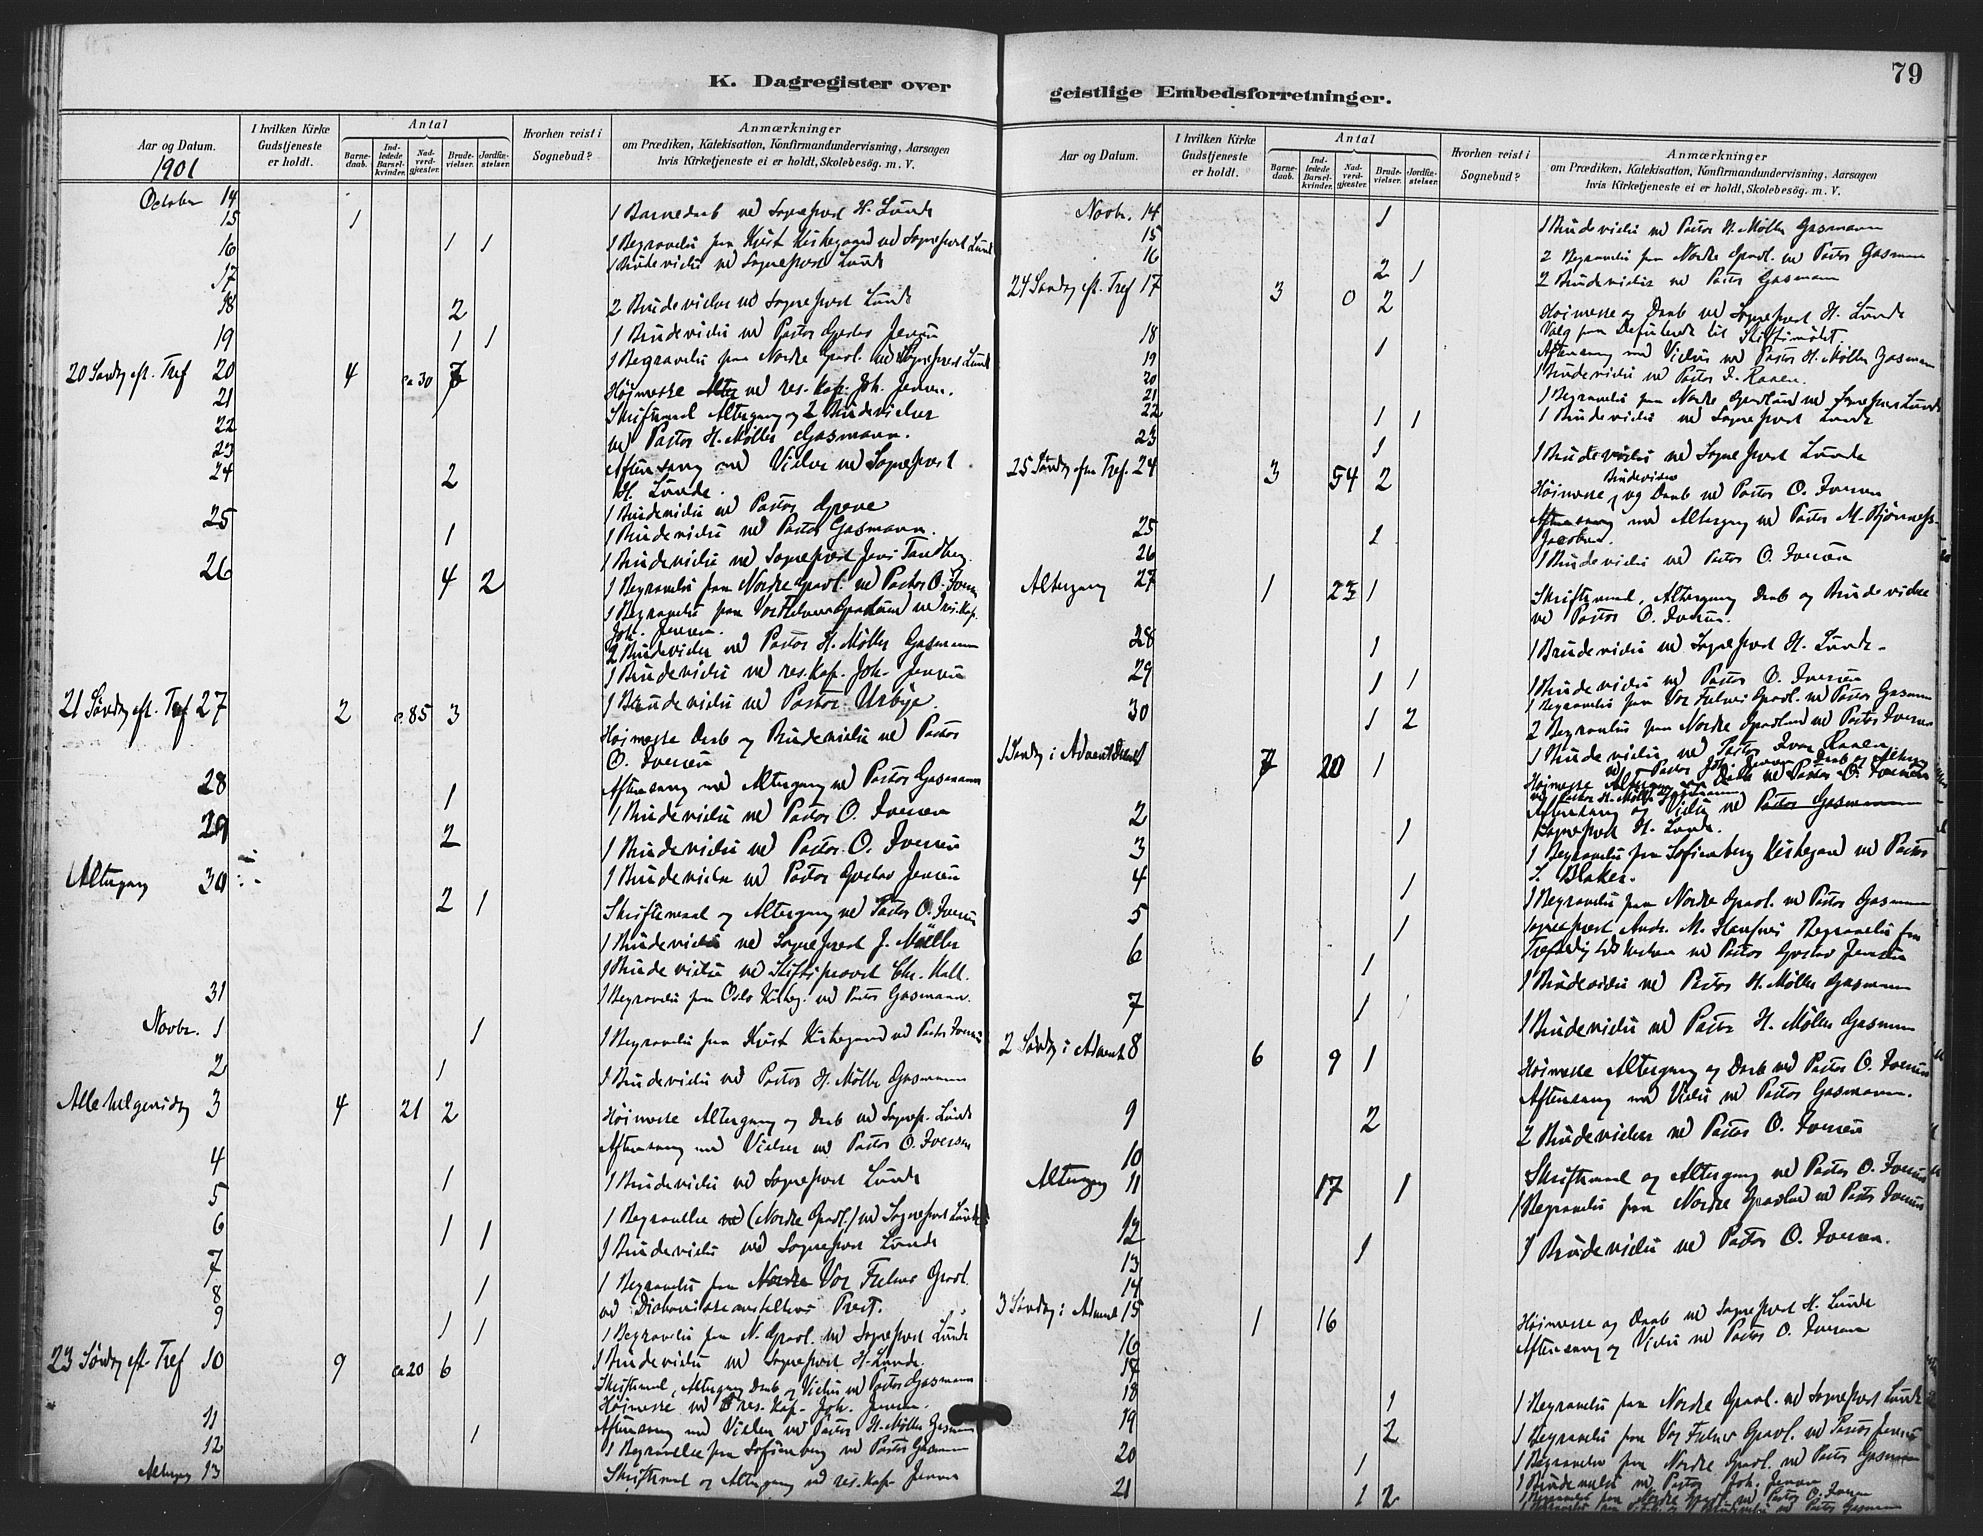 K. Dagregister over
Aar og Datum.
1901
I hvilken Kirke
Gudstjeneste
er holdt.
Antal
Barne-
daab.
Ind-
ledede
Barsel-
kvinder.
Nad-
verd-
gjester.
Brude-
vielser.
Jordfæ-
stelser.
Hvorhen reist i
Sognebud?
Anmærkninger
om Prædiken, Katekisation, Konfirmandundervisning, Aarsagen
hvis Kirketjeneste ei er holdt, Skolebesøg. m. V.
October 14
15 1 1 Barnedaab ved Sognepræst H. Lunde
16 1 1 1 Begravelse fra Krist Kirkegaard ved Sognepræst Lunde
1 Brudevielse ved Sognepræst Lunde
17
18 2 2 Brudevielser ved Sognepræst Lunde
19 1 1 1 Brudevielse ved Pastor Gustav Jensen
1 Begravelse fra Nordre Gravl. ved Sognepræst Lunde
20 Søndag eft. Tref 20 4 ca 30 7 Høimesse ved res. kap. Joh. Jensen.
21 Skriftemaal Altergang og 2 Brudevielser
22 ved Pastor H. Møller Gasmann.
23 Aftensang med Vielser ved Sognepræst
24 2 H. Lunde.
1 Brudevielse ved Pastor Greve
25 1 1 Brudevielse ved Pastor Gasmann.
1 Brudevielse ved Sognepræst Jens Tandberg
26 4 2 1 Begravelse fra Nordre Gravl. ved Pastor O. Iversen
1 Begravelse fra Vor Frelsers Gravlund ved res. kap.
Joh. Jensen.
2 Brudevielser ved Pastor H. Møller Gasmann
1 Brudevielse ved res. kap. Joh. Jensen
1 Brudevielse ved Pastor Urbye.
21 Søndag eft. Tref 27 2 ca 85 3 Høimesse Daab og Brudevielse ved Pastor
O. Iversen
Aftensang med Altergang ved Pastor Gasmann
28 1 1 Brudevielse ved Pastor O. Iversen
29 2 1 Brudevielse ved Pastor O. Iversen
1 Brudevielse ved Pastor Gustav Jensen
Altergang 30 2 1 Skriftemaal og Altergang ved Pastor O. Iversen
1 Brudevielse ved Sognepræst J. Møller
1 Brudevielse ved Stiftsprovst Chr. Hall.
31 1 Begravelse fra Oslo Kirkeg. ved Pastor Gasmann.
Novbr. 1 1 1 Begravelse fra Krist Kirkegaard ved Pastor Iversen
2 1 1 Brudevielse ved Pastor H. Møller Gasmann
Allehelgensdag 3 4 21 2 Høimesse Altergang og Daab ved Sognepr. Lunde
Aftensang med Vielser ved Pastor O. Iversen
4 1 1 Brudevielse ved Sognepræst Lunde
5
6 1 1 1 Begravelse (Nordre Gravl.) ved Sognepræst Lunde
1 Brudevielse ved Sognepræst Lunde
7 1 Begravelse fra Nordre Vor Frelsers Gravl.
8 1 ved Diakonisseanstaltens Prest.
9 1 1 1 Begravelse fra N. Gravl. ved Sognepræst Lunde
1 Brudevielse ved Sognepræst H. Lunde.
23 Søndag eft. Tref 10 9 ca 20 6 Skriftemaal, Altergang Daab og Vielser ved Pastor Gasmann
Høimesse ved res. kap. Joh. Jensen.
11 Aftensang med Vielser ved Pastor H. Møller Gasmann
12 1 1 Begravelse fra Sofienberg ved Pastor Gasmann
Altergang 13 Skriftemaal og Altergang ved res. kap. Jensen
79
geistlige Embedsforretninger.
Aar og Datum.
I hvilken Kirke
Gudstjeneste
er holdt.
Antal
Barne-
daab.
Ind-
ledede
Barsel-
kvinder.
Nad-
verd-
gjester.
Brude-
vielser.
Jordfæ-
stelser.
Hvorhen reist i
Sognebud?
Anmærkninger
om Prædiken, Katekisation, Konfirmandundervisning, Aarsagen
hvis Kirketjeneste ei er holdt, Skolebesøg. m. V.
Novbr. 14 1 1 Brudevielse ved Pastor H. Møller Gasmann
15
16 2 1 2 Begravelser fra Nordre Gravl. ved Pastor Gasmann
2 Brudevielser ved Pastor Gasmann
24 Søndag eft. Tref 17 3 0 2 Høimesse og Daab ved Sognepræst H. Lunde
Valg paa Deputerede til Stiftsmødet
Aftensang med Vielser ved Pastor H. Møller Gasmann
18 1 1 Brudevielse ved Pastor I. Raaen.
19
20
21
22 1 1 1 Begravelse fra Nordre Gravlund ved Sognepræst Lunde
1 Brudevielse ved Sognepræst Lunde
23 1 1 Brudevielse ved Sognepræst Lunde
25 Søndag efter Tref. 24 3 54 2 Høimesse, Brudevielser og Daab ved Pastor O. Iversen
Aftensang med Altergang ved Pastor M. Bjønness-
Jacobsen.
25 1 1 Brudevielse ved Pastor O. Iversen
26
Altergang 27 1 23 1 Skriftemaal, Altergang Daab og Brudevielse
ved Pastor O. Iversen.
28 1 1 Brudevielse ved Sognepræst H. Lunde.
29 1 1 1 Brudevielse ved Pastor O. Iversen
1 Begravelse fra Vor Frelsers Gravl. ved Pastor Gasmann
30 1 2 2 Begravelser fra Nordre Gravlund ved Pastor Iversen
1 Brudevielse ved Pastor Ivar Raaen
1 Søndag i Advent 1 7 20 1 Høimesse ved Pastor Joh. Jensen Daab og Altergang
ved Pastor H. Møller Gasmann
Aftensang og Vielse ved Pastor Gasmann
Sognepræst H. Lunde.
2 1 1 Begravelse fra Sofienberg Kirkegaard ved Pastor
3 S. Blaker.
4 1 1 Begravelse fra Nordre Gravl. ved Pastor Gasmann
5 1 Sognepræst Andr. M. Hansens Begravelse fra
Trefoldighedskirken ved Pastor Gustav Jensen
6 1 1 Brudevielse ved Pastor H. Møller Gasmann
7 1 1 Brudevielse ved Pastor H. Møller Gasmann
2 Søndag i Advent 8 6 9 1 Høimesse Altergang og Daab ved Pastor O. Iversen
Aftensang med Vielse ved Pastor Gasmann.
9 2 2 Brudevielser ved Pastor O. Iversen
10
Altergang 11 17 1 Skriftemaal og Altergang ved Pastor O. Iversen
1 Begravelse fra Nordre Gravlund ved Pastor Iversen
12 1 1 Brudevielse ved Pastor O. Iversen.
13
14
3 Søndag i Advent 15 1 16 Høimesse og Daab ved Sognepræst H. Lunde
16 Aftensang og Vielse ved Pastor O. Iversen
17
18 1 1 Begravelse fra Nordre Gravl. ved Sognepræst Lunde
19 2 1 Begravelse fra Vor Frelsers Gravl. ved Pastor Jensen
1 Begravelse fra Nordre Gravl. ved Pastor Gasmann
20 1 1 Brudevielse ved Pastor Joh. Jensen
21 1 2 1 Begravelse fra Nordre Gravl. ved Pastor O. Iversen